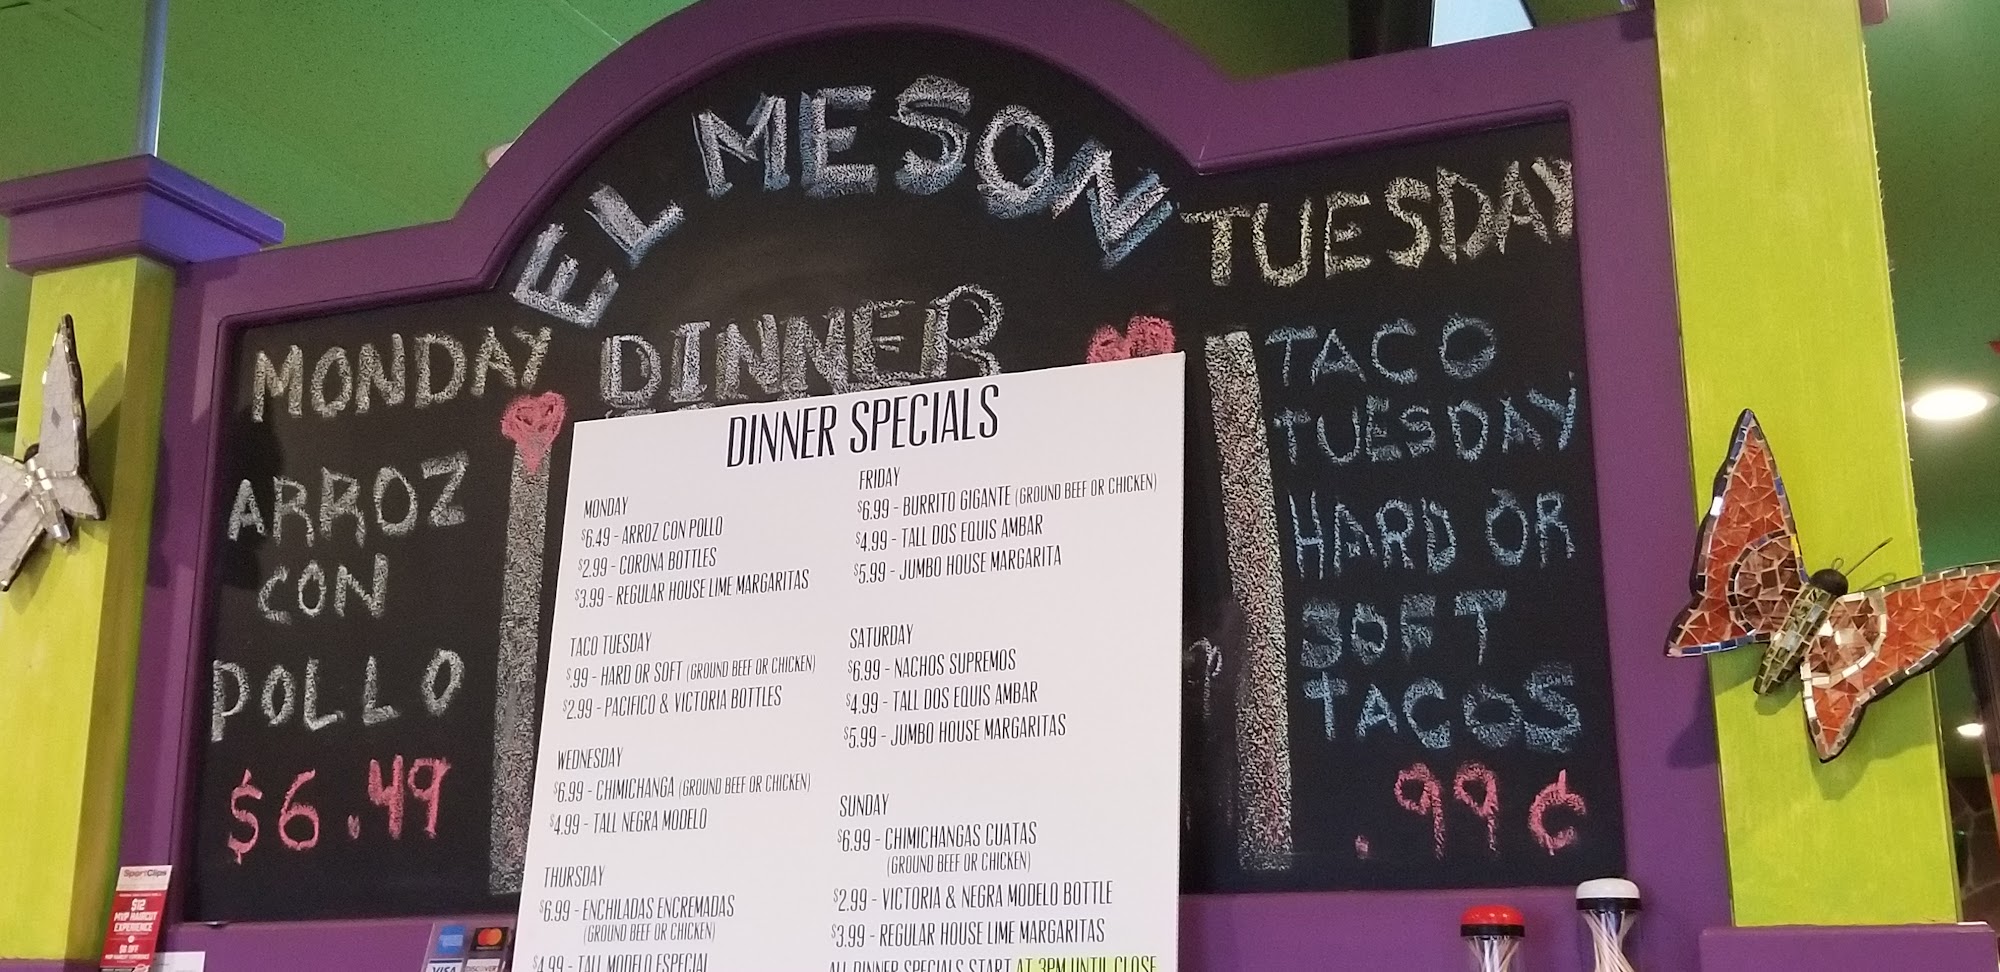 EL MESON
DINNER
MONDAY
ARROZ
CON
POLLO
$6.49
TUESDAY
TACO
TUESDAY
HARD OR
SOFT
TACOS
.99¢
DINNER SPECIALS
MONDAY
$6.49 - ARROZ CON POLLO
$2.99 - CORONA BOTTLES
$3.99 - REGULAR HOUSE LIME MARGARITAS
TACO TUESDAY
$.99 - HARD OR SOFT (GROUND BEEF OR CHICKEN)
$2.99 - PACIFICO & VICTORIA BOTTLES
WEDNESDAY
$6.99 - CHIMICHANGA (GROUND BEEF OR CHICKEN)
$4.99 - TALL NEGRA MODELO
THURSDAY
$6.99 - ENCHILADAS ENCREMADAS
(GROUND BEEF OR CHICKEN)
$4.99 - TALL MODELO ESPECIAL
FRIDAY
$6.99 - BURRITO GIGANTE (GROUND BEEF OR CHICKEN)
$4.99 - TALL DOS EQUIS AMBAR
$5.99 - JUMBO HOUSE MARGARITA
SATURDAY
$6.99 - NACHOS SUPREMOS
$4.99 - TALL DOS EQUIS AMBAR
$5.99 - JUMBO HOUSE MARGARITAS
SUNDAY
$6.99 - CHIMICHANGAS CUATAS
(GROUND BEEF OR CHICKEN)
$2.99 - VICTORIA & NEGRA MODELO BOTTLE
$3.99 - REGULAR HOUSE LIME MARGARITAS
ALL DINNER SPECIALS START AT 3PM UNTIL CLOSE
SportClips
$12
MVP HAIRCUT
EXPERIENCE
VISA
DISCOVER